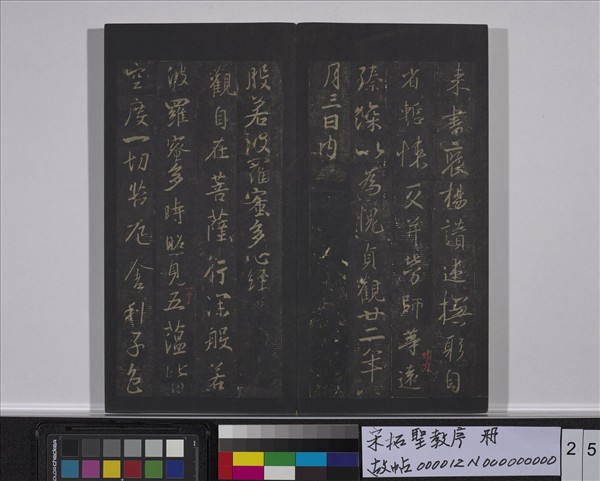 來書褒揚讚述撫躬自
省慙悚交并勞師等遠
臻深以為愧貞觀廿二年八
月三日內
般若波羅蜜多心經
觀自在菩薩行深般若
波羅蜜多時照見五蘊皆
空度一切苦厄舍利子色
宋拓聖教序 冊
故帖000012N000000000
25